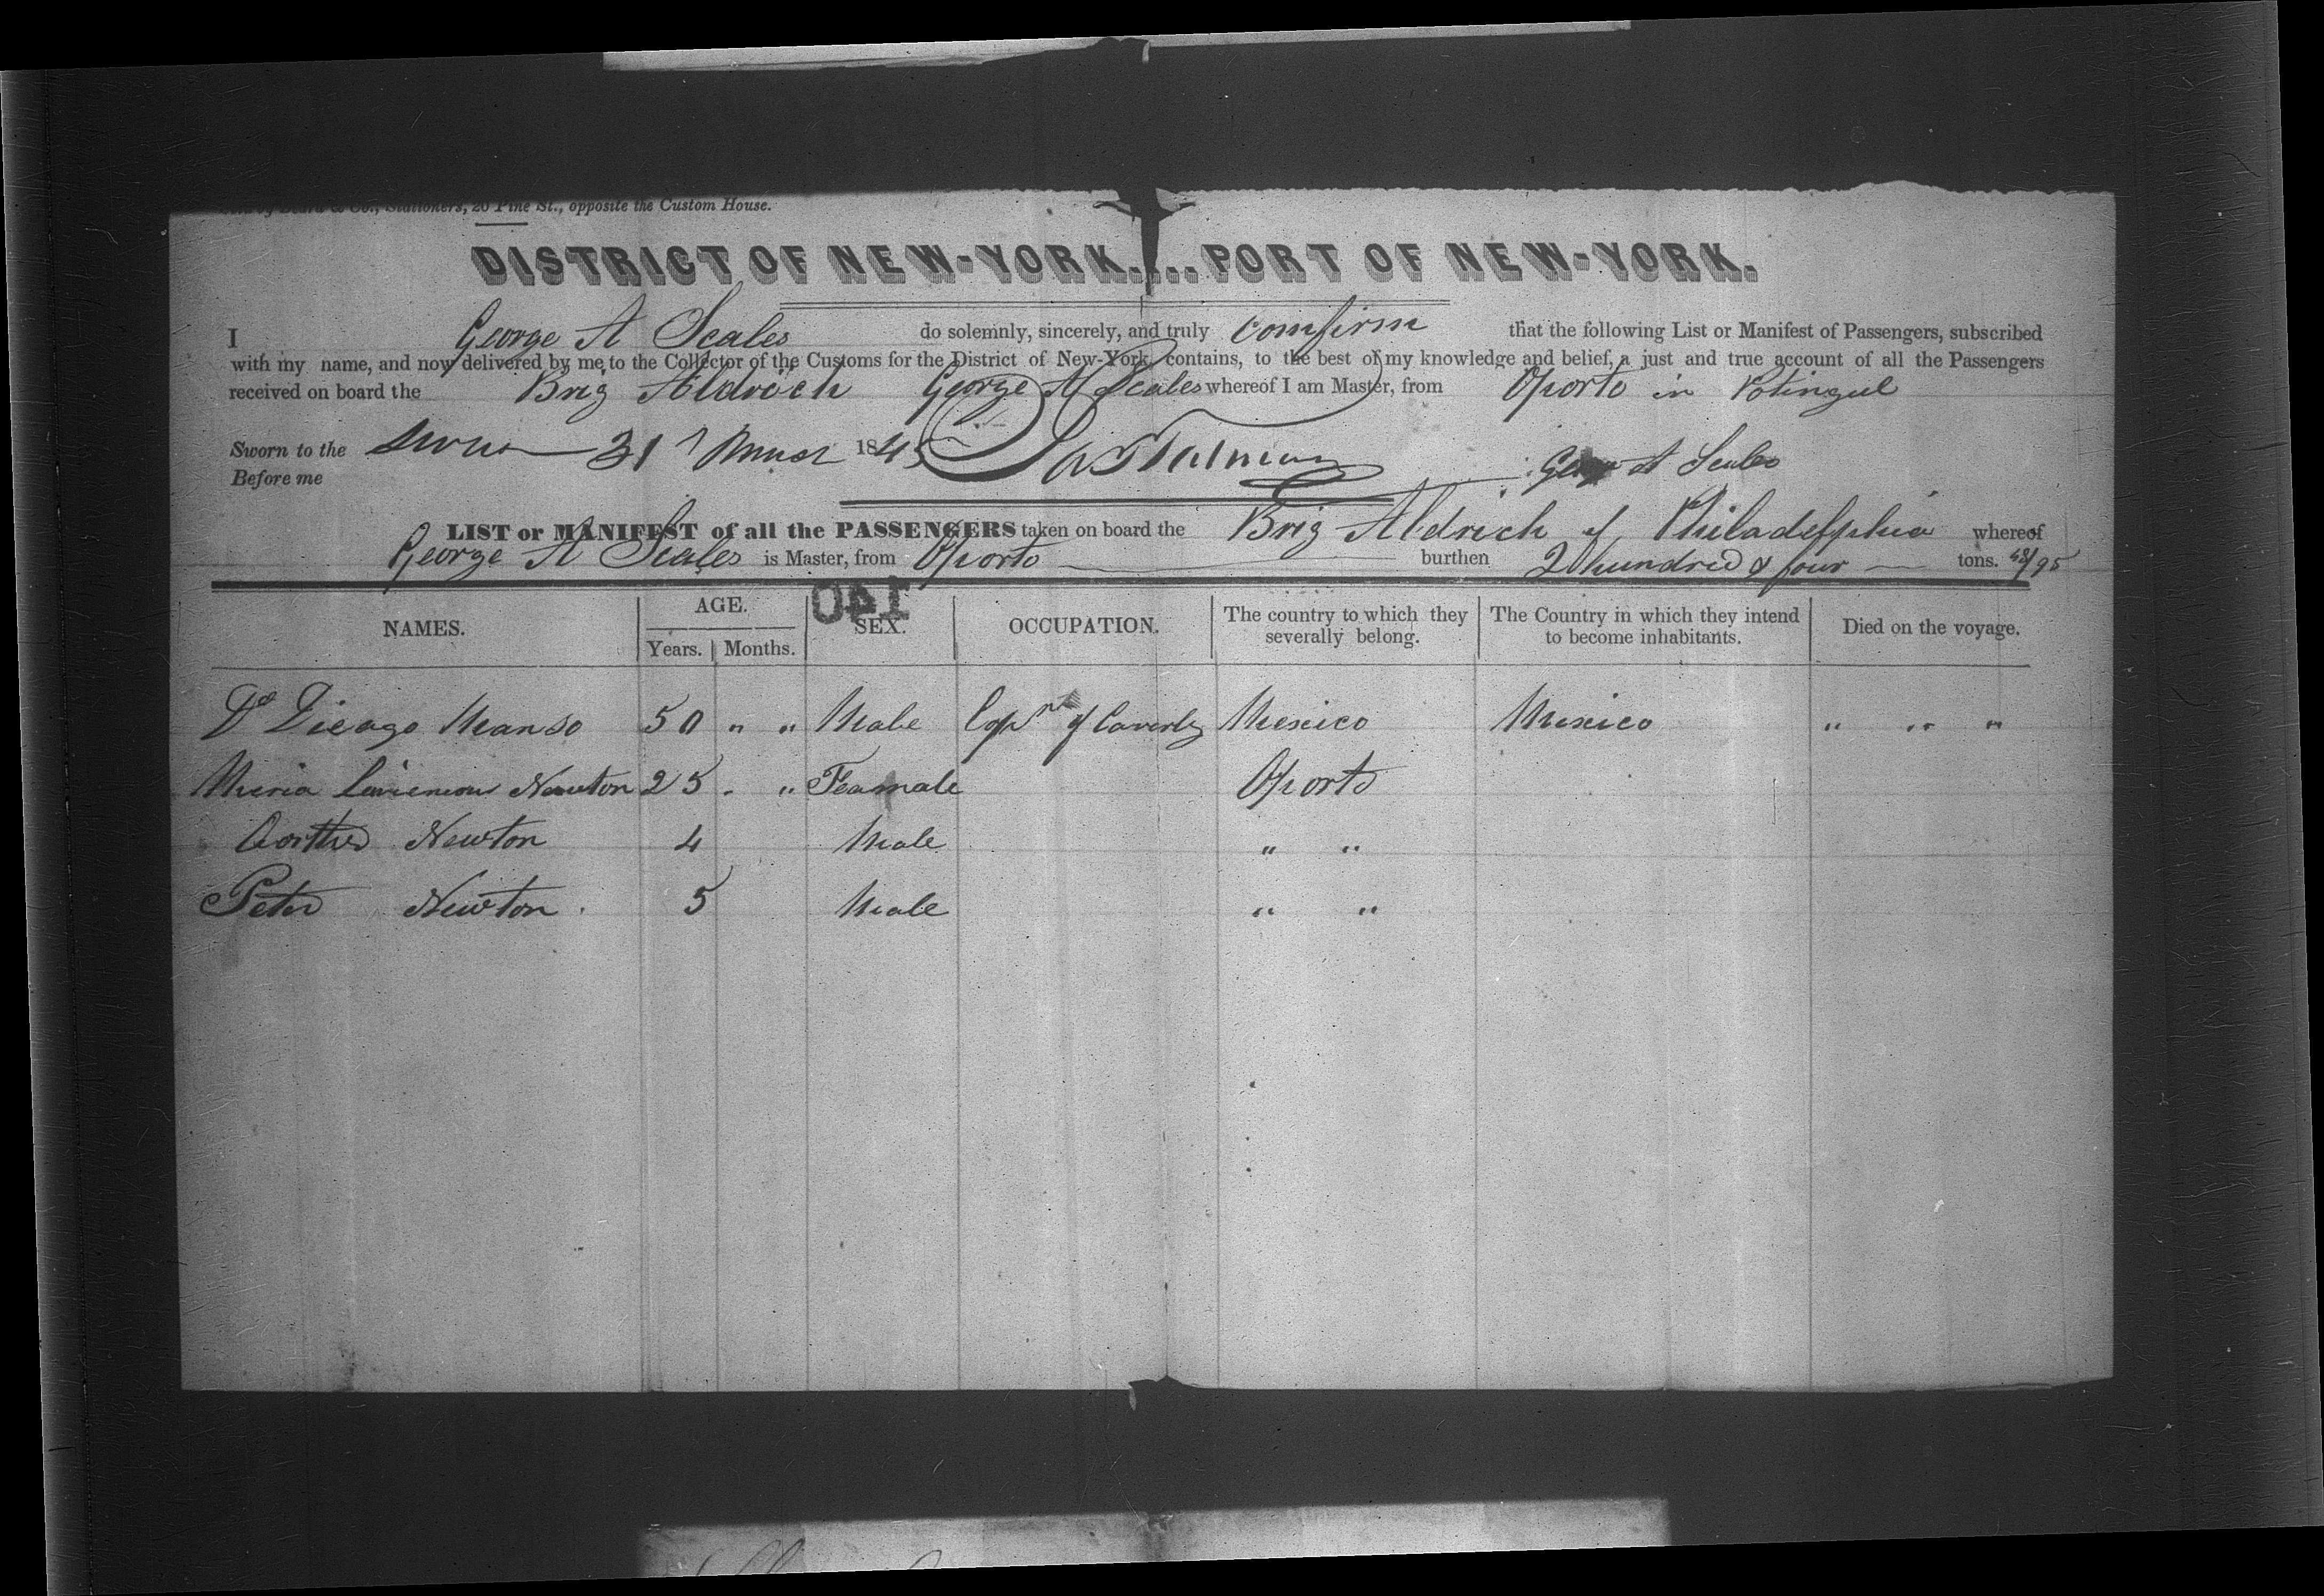 Beard & Co., Stationers, 26 Pine St., opposite the Custom House.
DISTRICT OF NEW-YORK....PORT OF NEW-YORK.
I George A Scales do solemnly, sincerely, and truly comfirm that the following List or Manifest of Passengers, subscribed
with my name, and now delivered by me to the Collector of the Customs for the District of New-York, contains, to the best of my knowledge and belief, a just and true account of all the Passengers
received on board the Brig Aldrich George A Scales whereof I am Master, from Oporto in
Sworn to the 31 1845
Before me Geo A Scales
LIST or MANIFEST of all the PASSENGERS taken on board the Brig Aldrich of Philadelphia whereof
George A Scales is Master, from Oporto burthen 2 hundred & four tons. 48/95
140
NAMES. AGE. SEX. OCCUPATION. The country to which they severally belong. The Country in which they intend to become inhabitants. Died on the voyage.
Years. Months.
Dieago Manso 50 " " Male of Caverly Mexico Mexico " " "
Newton 25 " " Feamale Oporto
Newton 4 Male " "
Peter Newton 5 Male " "